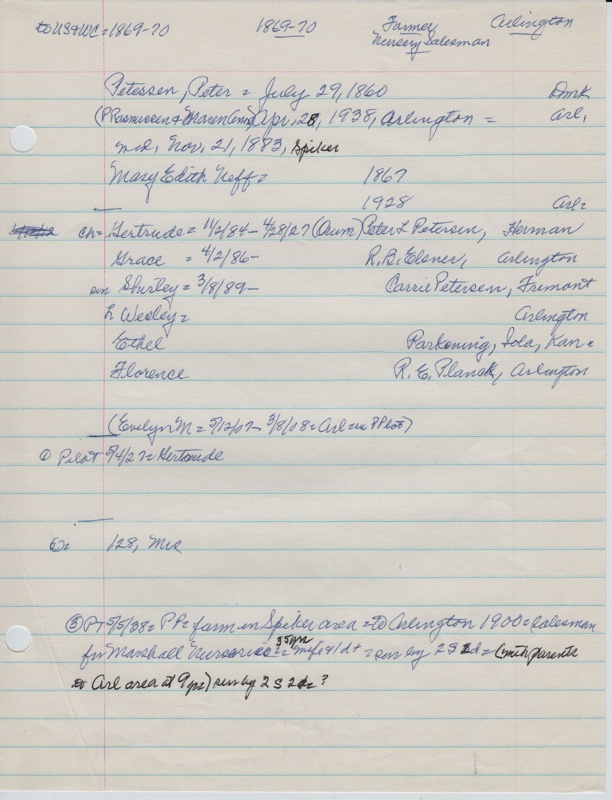 to US & WC = 1869-70 1869-70 Farmer Arlington
Nursery Salesman
Petersen, Peter = July 29, 1860 Dmk
(P Rasmussen & Maren Ann) Apr. 28, 1938, Arlington = Arl,
md. Nov. 21, 1883, Spiker
Mary Edith Neff = 1867
1928 Arl =
ch = Gertrude = 11/2/84 - 4/28/27 (Oum) Peter L Petersen, Herman
Grace = 4/2/86 - R. B. Elsner, Arlington
son Shurley = 3/8/89 - Carrie Petersen, Fremont
L Wesley = Arlington
Ethel Parkening, Iola, Kan =
Florence R. E. Planck, Arlington
(Evelyn M = 5/12/07 - 3/8/08 = Arl = in Pilot)
① Pilot 5/4/27 = Gertrude
128, Mrs
③ P + 5/5/38 = PP = farm in Spiker area = to Arlington 1900 = Salesman
for Marshall Nurseries 35 yrs = wife & 1 dt = sur by 2 S 2 d = (with parents
to Arl area at 9 yrs) sur by 2 S 2 d = ?